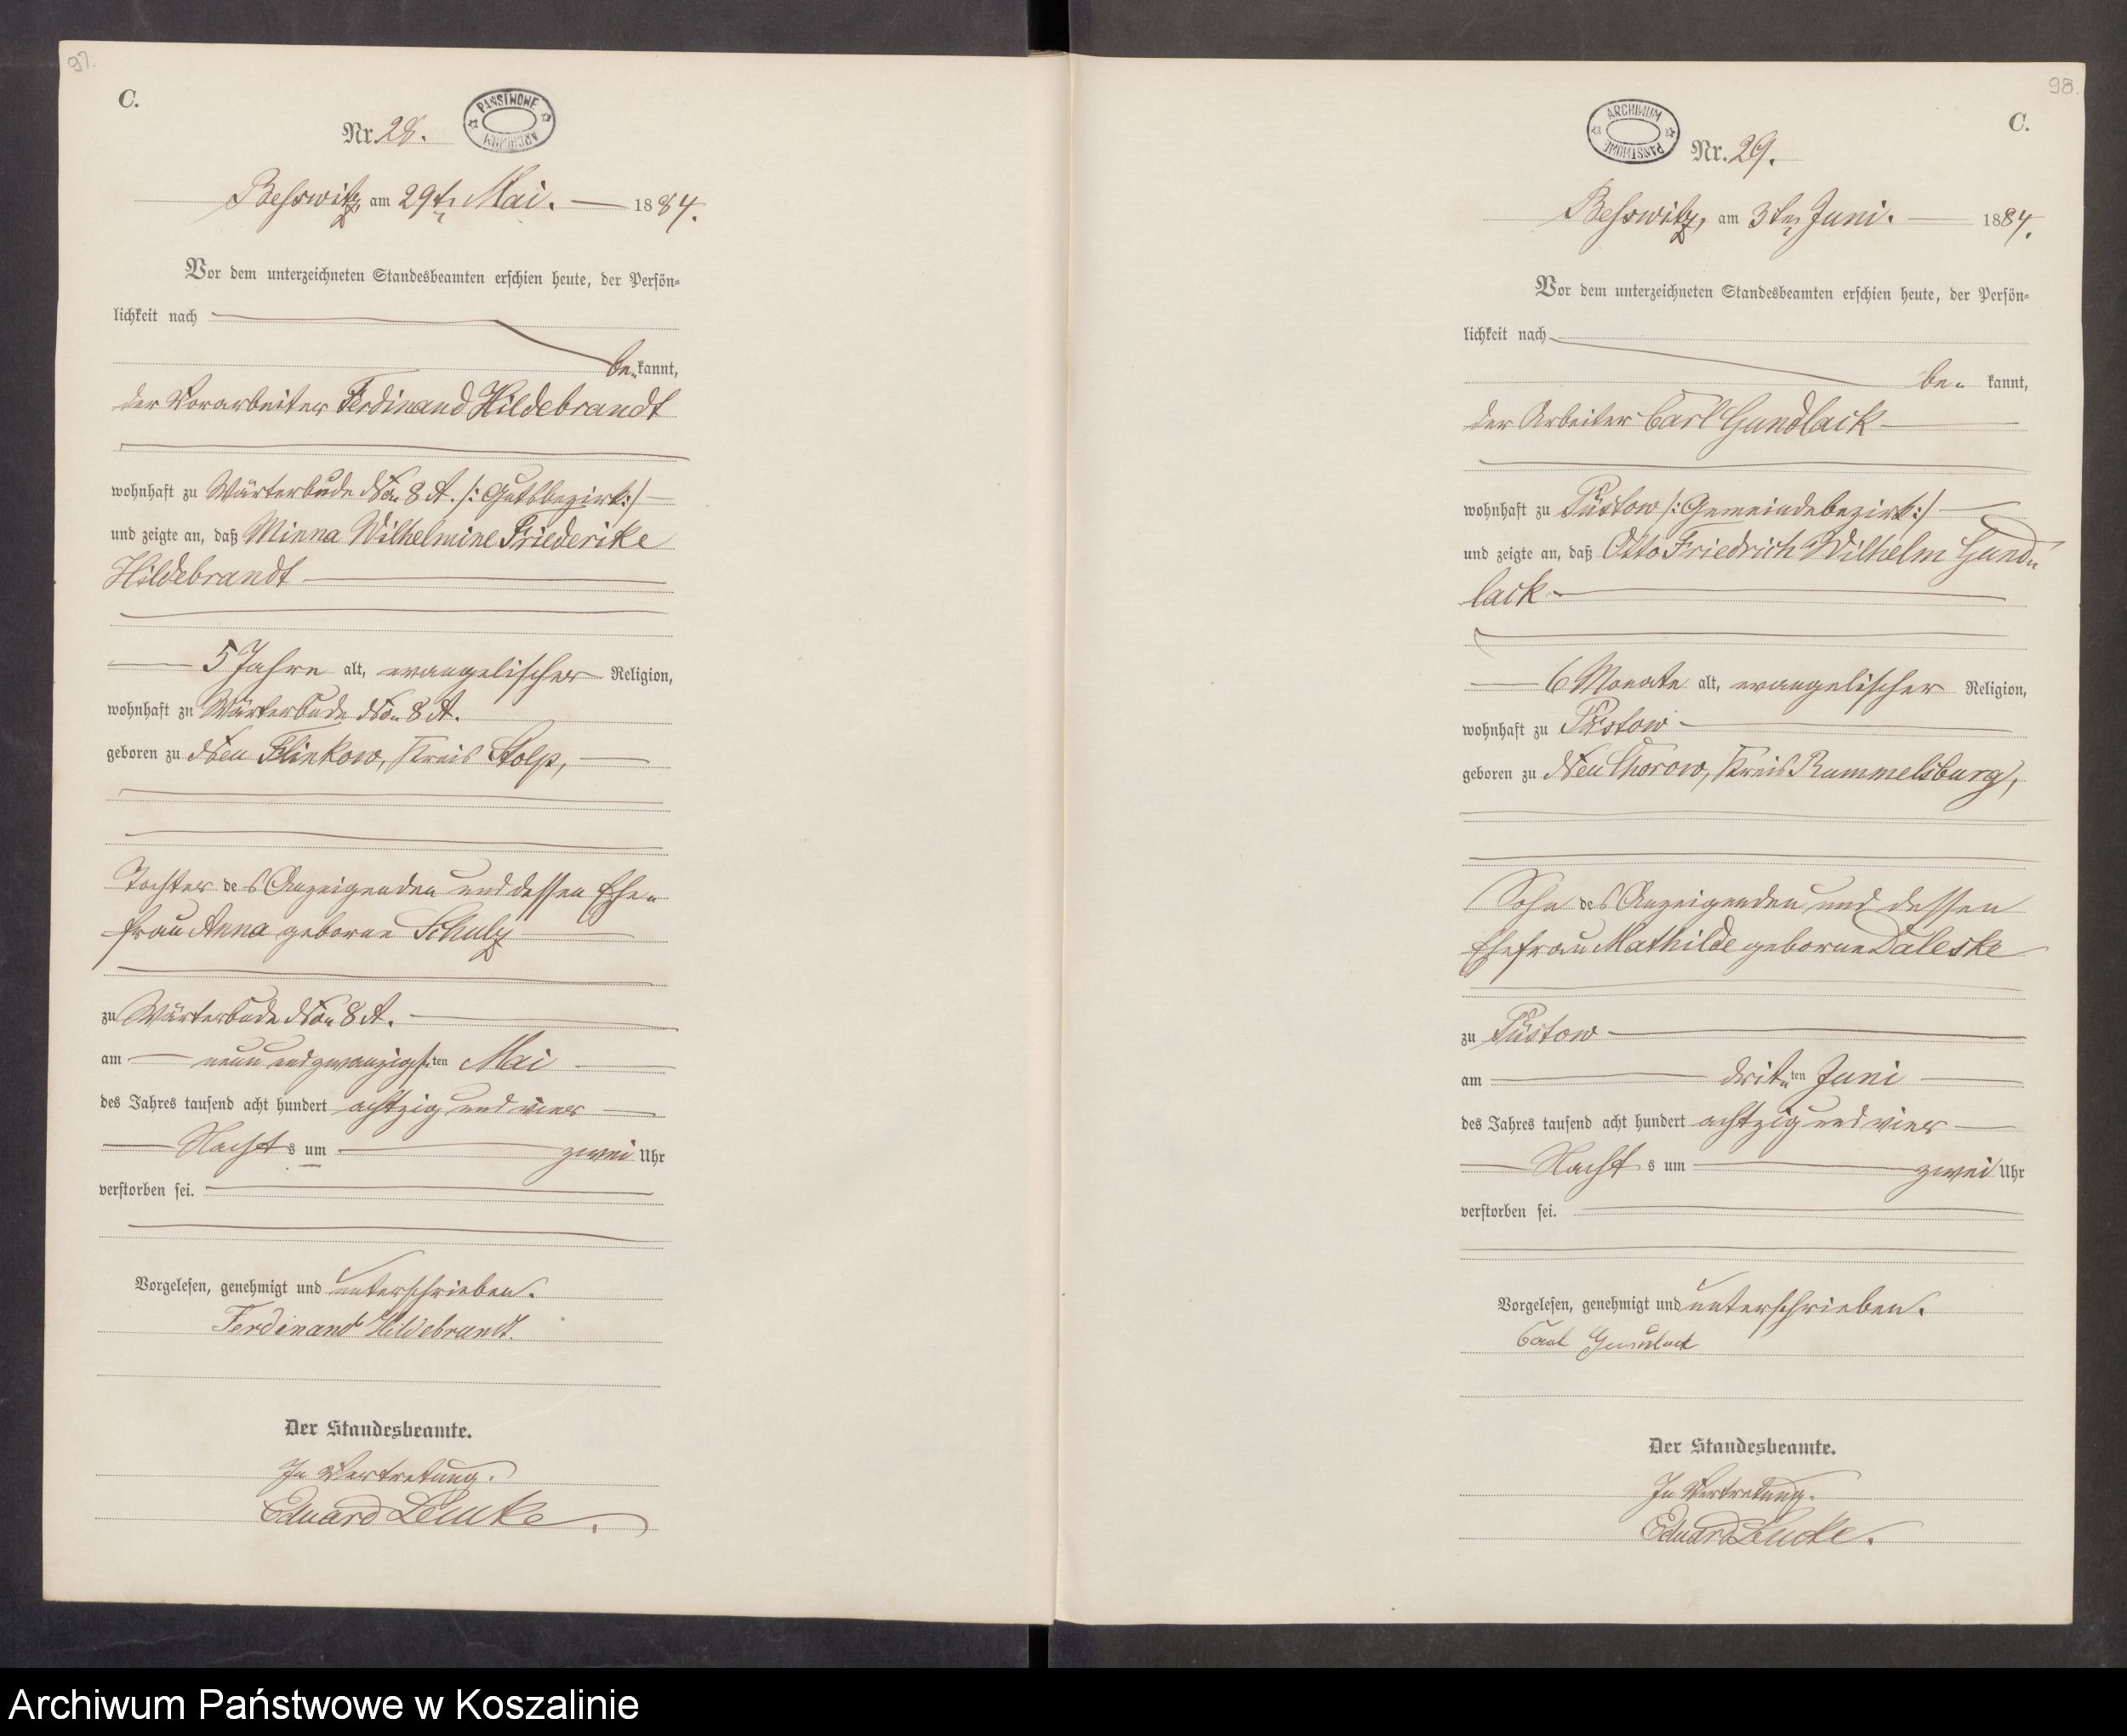 97.
C.
Nr. 28.
PAŃSTWOWE ARCHIWUM
Besswitz, am 29ten Mai. 1884.
Vor dem unterzeichneten Standesbeamten erschien heute, der Persön-
lichkeit nach
be- kannt,
der Vorarbeiter Ferdinand Hildebrandt
wohnhaft zu Wärterbude No 8 A. /: Gutsbezirk :/
und zeigte an, daß Minna Wilhelmine Friederike
Hildebrandt
5 Jahre alt, evangelischer Religion,
wohnhaft zu Wärterbude No 8 A.
geboren zu Neu Flinkow, Kreis Stolp,
Tochter des Anzeigenden und dessen Ehe-
frau Anna geborne Schulz
zu Wärterbude No 8 A.
am neun und zwanzigsten Mai
des Jahres tausend acht hundert achtzig und vier
Nachts um zwei Uhr
verstorben sei.
Vorgelesen, genehmigt und unterschrieben.
Ferdinand Hildebrandt.
Der Standesbeamte.
In Vertretung.
Eduard Lemke.
98.
C.
ARCHIWUM PAŃSTWOWE
Nr. 29.
Besswitz, am 3ten Juni. 1884.
Vor dem unterzeichneten Standesbeamten erschien heute, der Persön-
lichkeit nach
be- kannt,
der Arbeiter Carl Gundlack
wohnhaft zu Püstow /: Gemeindebezirk :/
und zeigte an, daß Otto Friedrich Wilhelm Gund-
lack
6 Monate alt, evangelischer Religion,
wohnhaft zu Püstow
geboren zu Neu Chorow, Kreis Rummelsburg,
Sohn des Anzeigenden und dessen
Ehefrau Mathilde geborne Daleske
zu Püstow
am dritten Juni
des Jahres tausend acht hundert achtzig und vier
Nachts um zwei Uhr
verstorben sei.
Vorgelesen, genehmigt und unterschrieben.
Carl Gundlack
Der Standesbeamte.
In Vertretung.
Eduard Lemke.
Archiwum Państwowe w Koszalinie